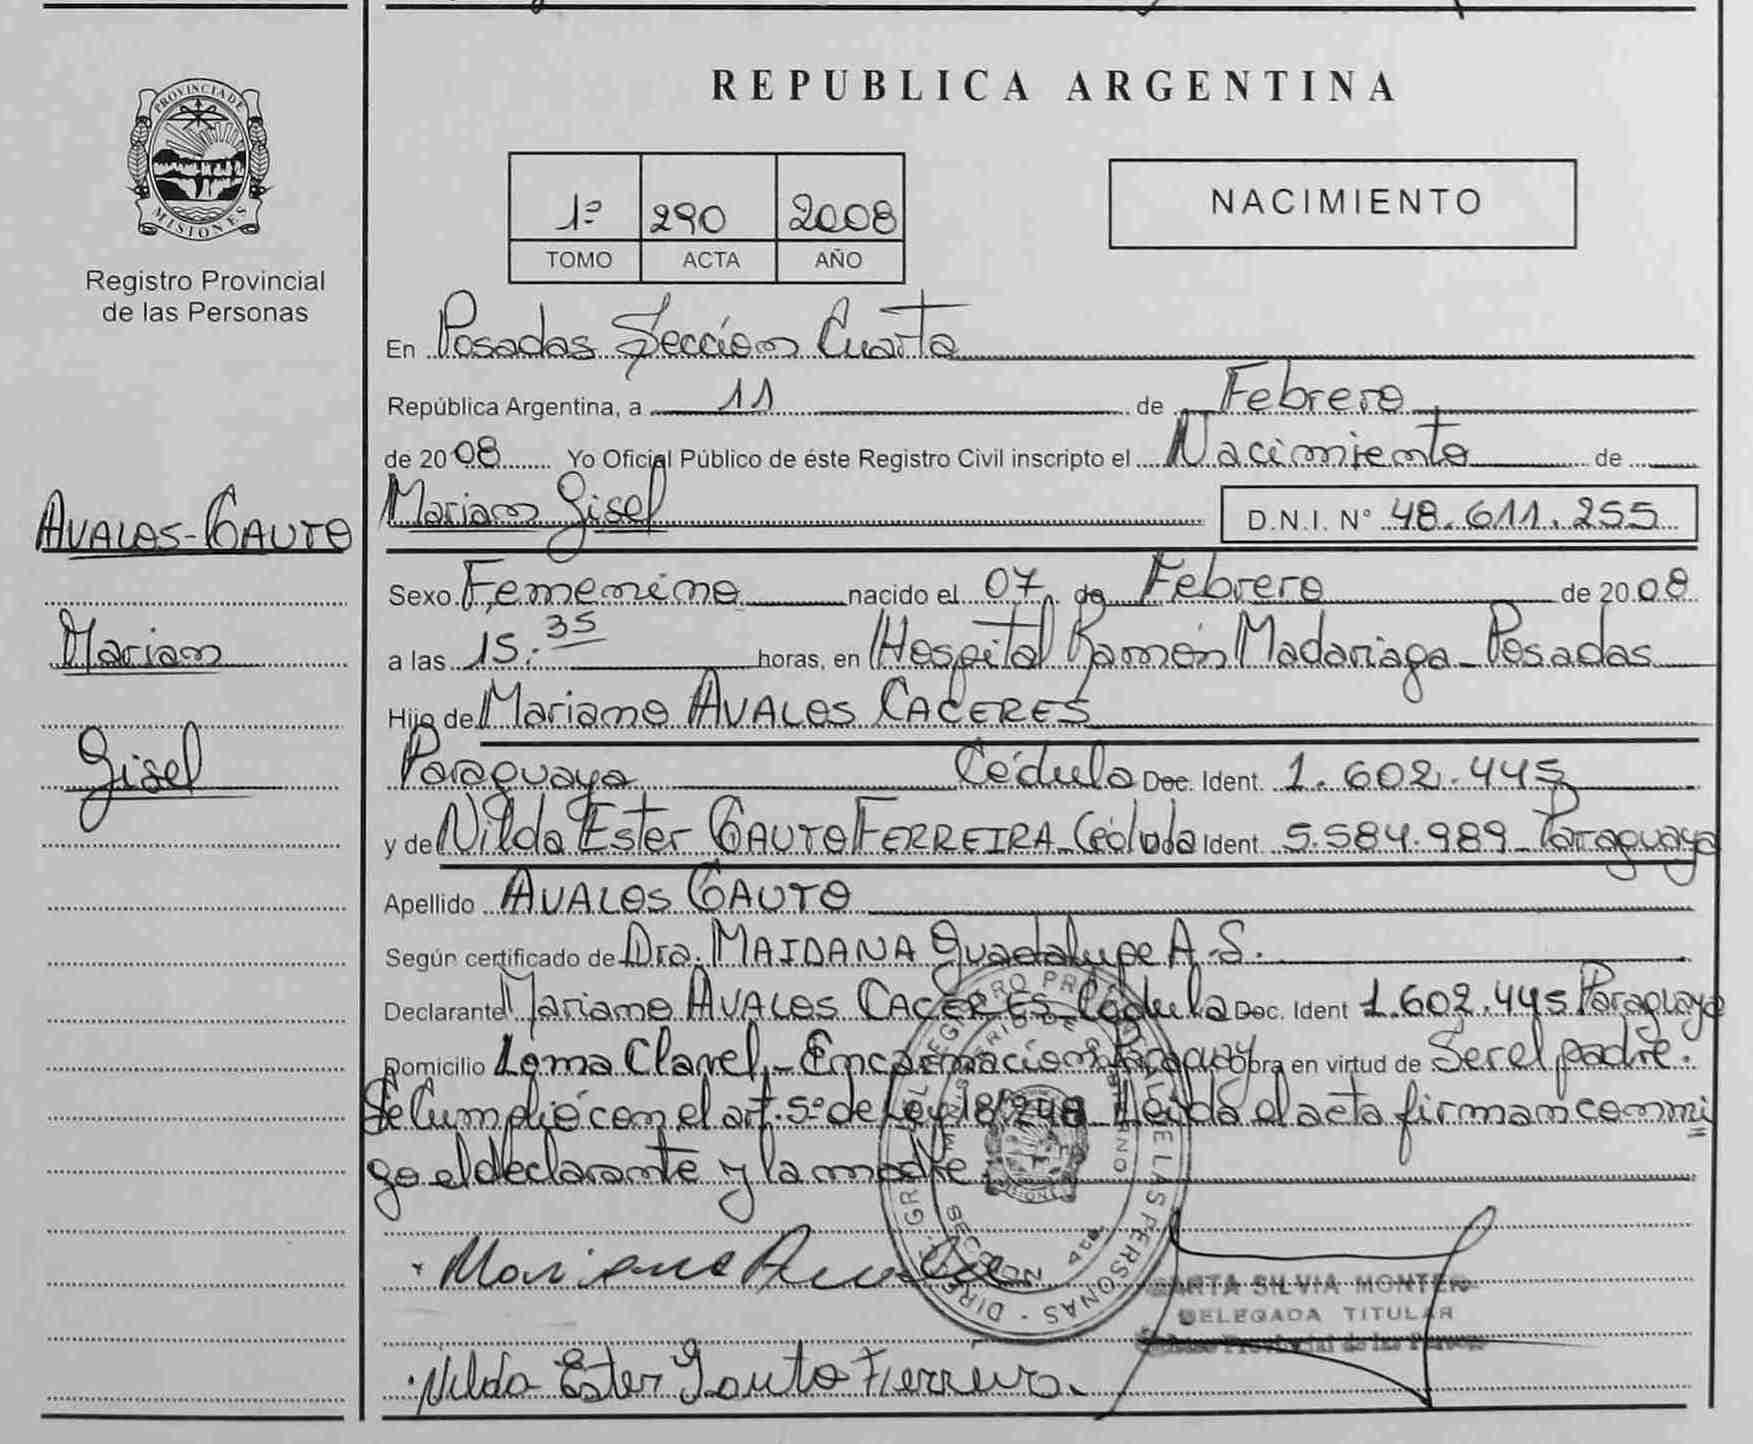 REPUBLICA ARGENTINA
PROVINCIA DE
MISIONES
Registro Provincial
de las Personas
1º 290 2008
TOMO ACTA AÑO
NACIMIENTO
En Posadas Sección Cuarta
República Argentina, a 11 de Febrero
de 2008 Yo Oficial Público de éste Registro Civil inscripto el Nacimiento de
Mariam Gisel D.N.I. Nº 48.611.255
AVALOS-GAUTO
Mariam
Gisel
Sexo Femenino nacido el 07 de Febrero de 2008
a las 15:35 horas, en Hospital Ramón Madariaga - Posadas
Hijo de Mariano AVALOS CACERES
Paraguaya Cédula Doc. Ident. 1.602.445
y de Nilda Ester GAUTO FERREIRA - Cédula Ident 5.584.989 - Paraguaya
Apellido AVALOS GAUTO
Según certificado de Dra. MAIDANA Guadalupe A.S.
Declarante Mariano AVALOS CACERES - Cédula Doc. Ident 1.602.445 Paraguaya
Domicilio Loma Clavel - Encarnacion Paraguay Obra en virtud de Ser el padre.
Se Cumplió con el art. 5º de Ley 18.248 Leída el acta firman conmi
go el declarante y la madre.
Mariano Avalos
SILVIA MONTE
DELEGADA TITULAR
Provincial de las
Nilda Ester Gauto Ferreira.